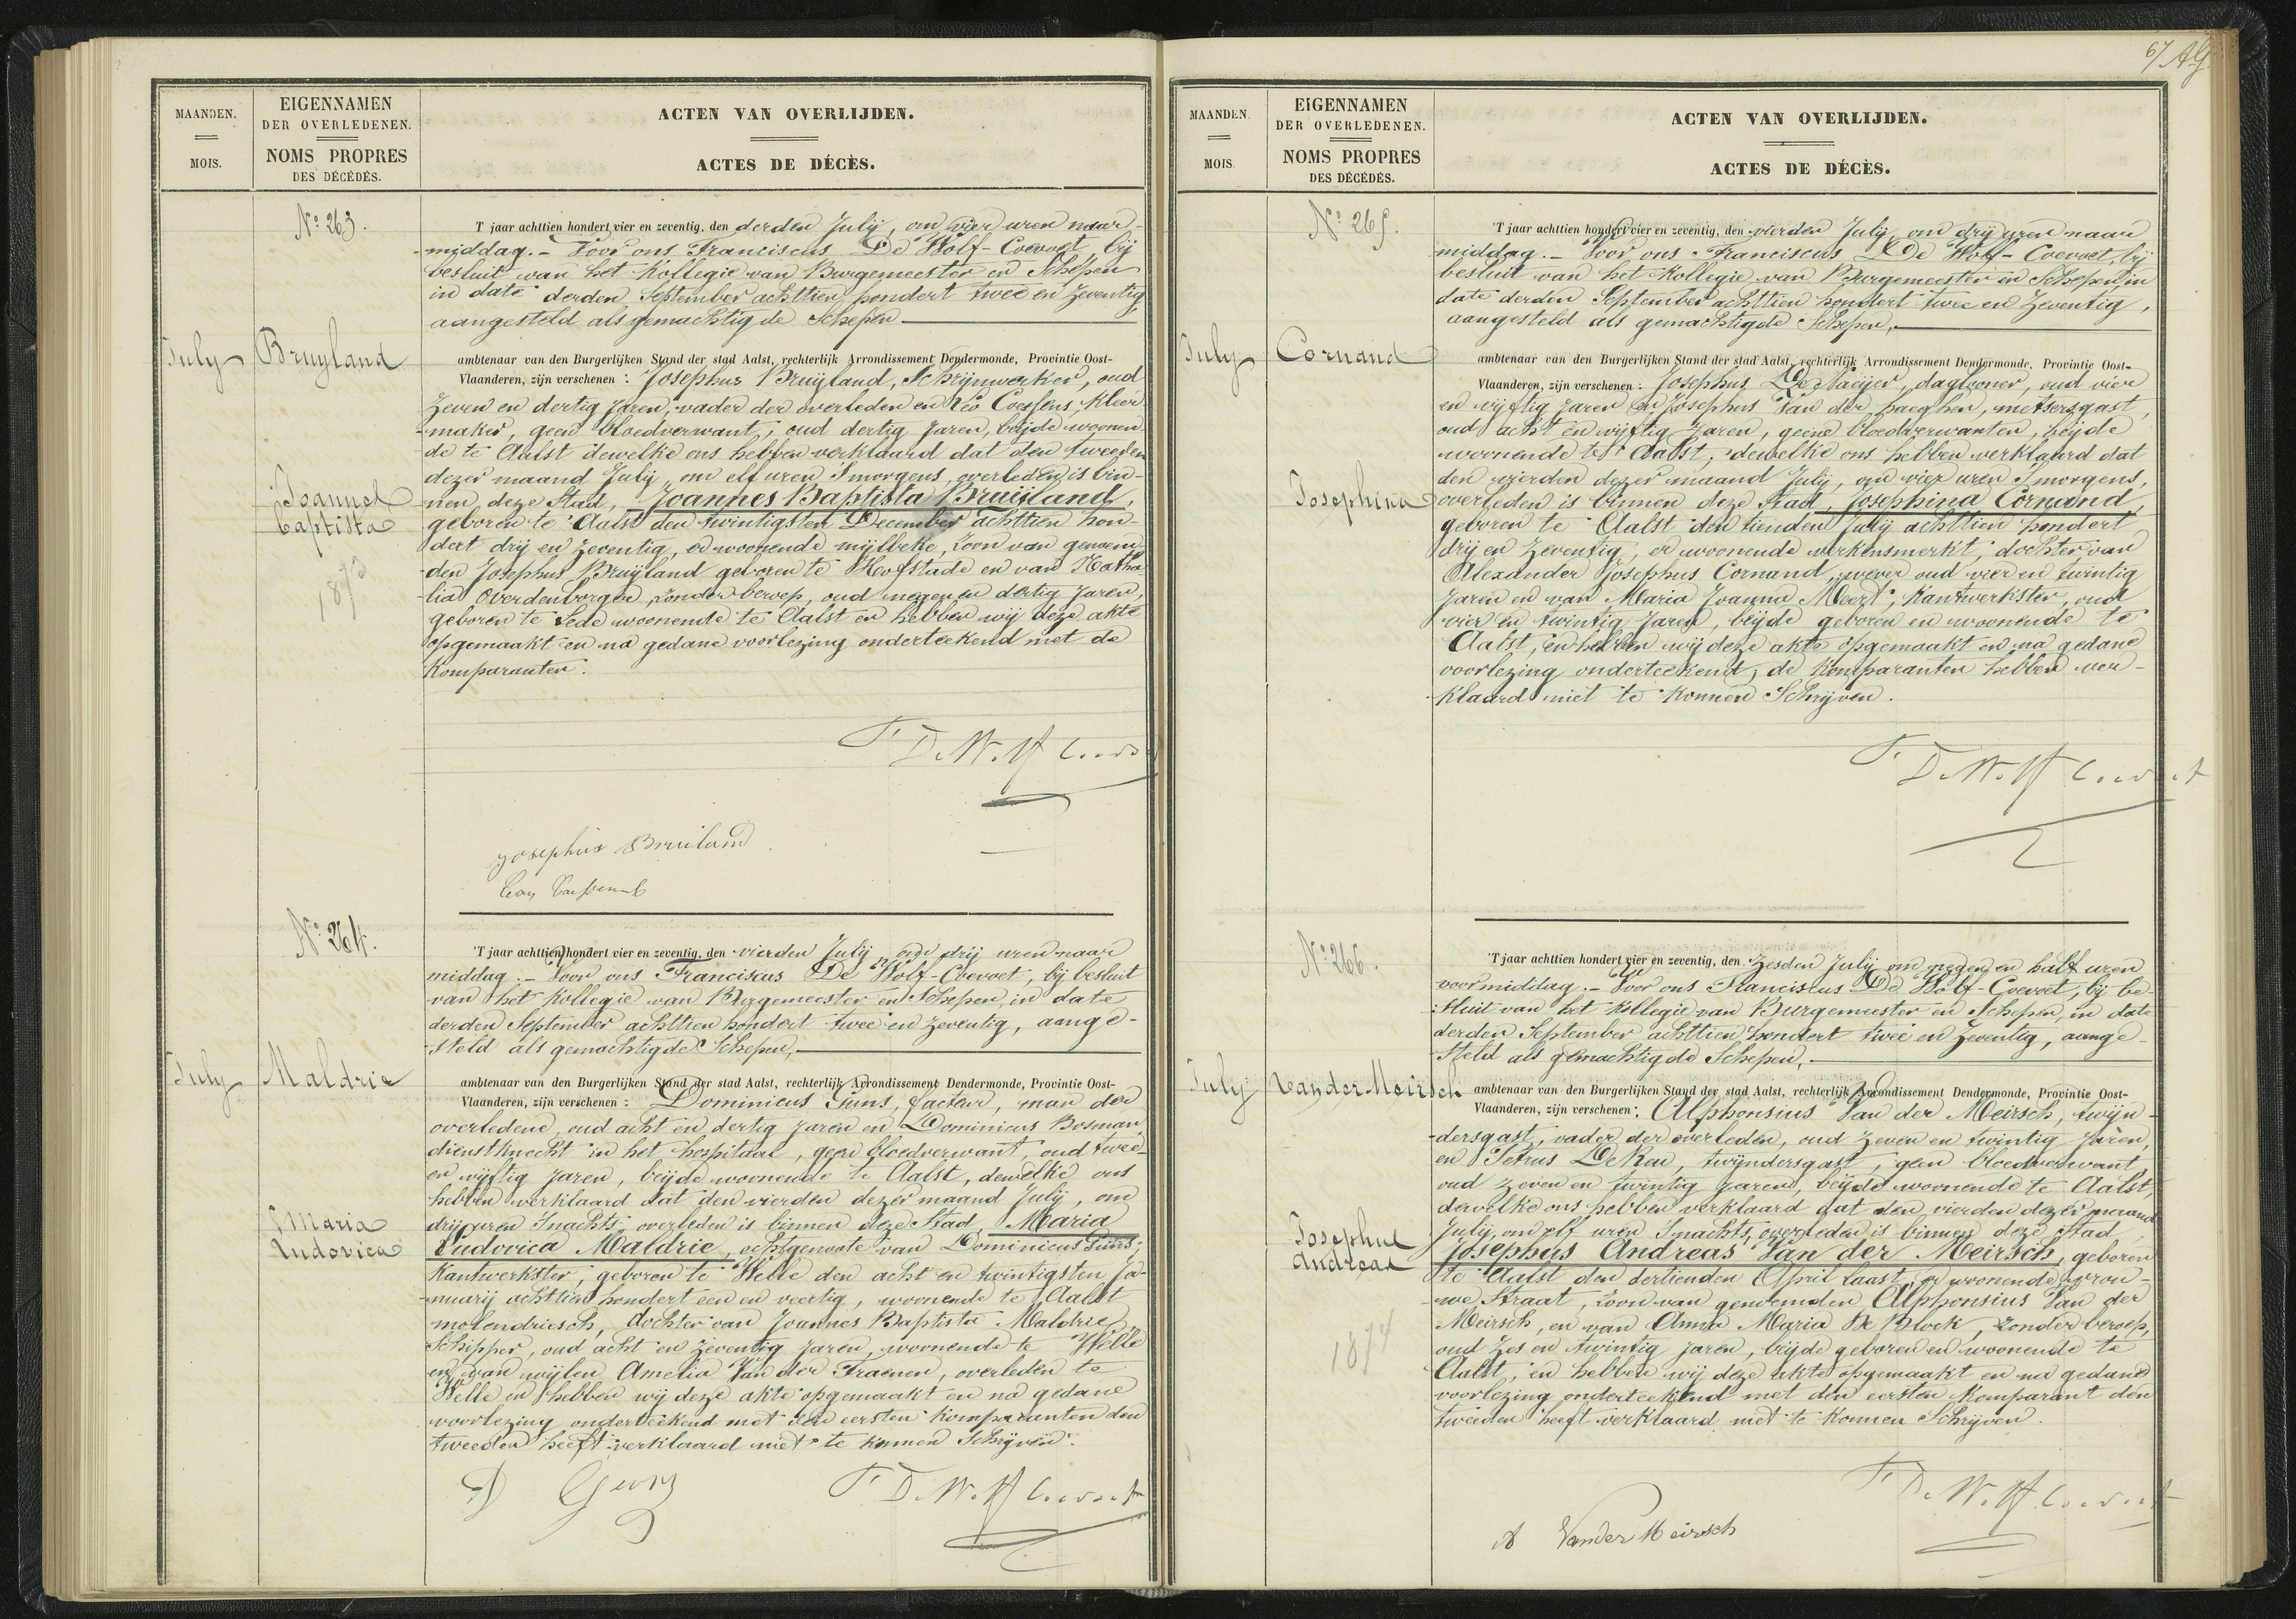 MAANDEN.
MOIS.
EIGENNAMEN
DER OVERLEDENEN.
NOMS PROPRES
DES DÉCÉDÉS.
ACTEN VAN OVERLIJDEN.
ACTES DE DÉCÈS.
Nº 263.
July
Bruyland
Joannes
Baptista
1873
'T jaar achttien hondert vier en zeventig, den derden July, om vier uren naar-
middag. - Voor ons Franciscus De Wolf-Coevoet, bij
besluit van het Kollegie van Burgemeester en Schepen
in date derden September achttien hondert twee en zeventig
aangesteld als gemachtigde Schepen
ambtenaar van den Burgerlijken Stand der stad Aalst, rechterlijk Arrondissement Dendermonde, Provintie Oost-
Vlaanderen, zijn verschenen : Josephus Bruijland, Schrijnwerker, oud
zeven en dertig jaren, vader der overleden en Leo Coessens, kleer-
maker, geen bloedverwant, oud dertig jaren, beijde woonen-
de te Aalst dewelke ons hebben verklaard dat den tweeden
dezer maand July, om elf uren Smorgens, overleden is bin-
nen deze Stad, Joannes Baptista Bruijland,
geboren te Aalst den twintigsten December achttien hon-
dert drij en zeventig, er woonende mijlbeke, zoon van genoem-
den Josephus Bruijland geboren te Hofstade en van Natha-
lia Overdenborger, zonder beroep, oud negen en dertig jaren,
geboren te Lede woonende te Aalst en hebben wij deze akte
opgemaakt en na gedane voorlezing onderteekend met de
Komparanten.
F De Wolf Coevoet
Josephus Bruiland
Leon Coessens
Nº 264.
July
Maldrie
Maria
Ludovica
'T jaar achttien hondert vier en zeventig, den vierden July om drij uren naar
middag. - Voor ons Franciscus De Wolf-Coevoet, bij besluit
van het Kollegie van Burgemeester en Schepen, in date
derden September achttien hondert twee en zeventig, aange-
steld als gemachtigde Schepen,
ambtenaar van den Burgerlijken Stand der stad Aalst, rechterlijk Arrondissement Dendermonde, Provintie Oost-
Vlaanderen, zijn verschenen : Dominicus Guns, facteur, man der
overledene, oud acht en dertig jaren en Dominicus Bosman,
dienstknecht in het hospitaal, geen bloedverwant, oud twee
en vijftig jaren, beijde woonende te Aalst, dewelke ons
hebben verklaard dat den vierden dezer maand July, om
drij uren Snachts, overleden is binnen deze Stad, Maria
Ludovica Maldrie, echtgenoote van Dominicus Guns,
Kantwerkster, geboren te Welle den acht en twintigsten Ja-
nuarij achttien hondert een en veertig, woonende te Aalst
molendriesch, dochter van Joannes Baptista Maldrie,
Schipper, oud acht en zeventig jaren, woonende te Welle
en van wijlen Amelia Van der Fraenen, overleden te
Welle en hebben wij deze akte opgemaakt en na gedane
voorlezing onderteekend met den eersten Komparanten den
tweeden heeft verklaard niet te konnen Schrijven.
D Guns
F De Wolf Coevoet
67
MAANDEN.
MOIS.
EIGENNAMEN
DER OVERLEDENEN.
NOMS PROPRES
DES DÉCÉDÉS.
ACTEN VAN OVERLIJDEN.
ACTES DE DÉCÈS.
Nº 265.
July
Cornand
Josephina
'T jaar achttien hondert vier en zeventig, den vierden July, om drij uren naar
middag. - Voor ons Franciscus De Wolf-Coevoet, bij
besluit van het Kollegie van Burgemeester en Schepen, in
date derden September achttien hondert twee en zeventig,
aangesteld als gemachtigde Schepen,
ambtenaar van den Burgerlijken Stand der stad Aalst, rechterlijk Arrondissement Dendermonde, Provintie Oost-
Vlaanderen, zijn verschenen : Josephus De Naeijer, dagloner, oud vier
en vijftig jaren en Josephus Van der haeghen, metsersgast,
oud acht en vijftig jaren, geene bloedverwanten, beijde
woonende te Aalst, dewelke ons hebben verklaard dat
den vierden dezer maand July, om vier uren Smorgens,
overleden is binnen deze Stad, Josephina Cornand,
geboren te Aalst den tienden July achttien hondert
drij en zeventig, er woonende verkensmerkt, dochter van
Alexander Josephus Cornand, wever oud vier en twintig
jaren en van Maria Joanna Meert, kantwerkster, oud
vier en twintig jaren, beijde geboren en woonende te
Aalst, en hebben wij deze akte opgemaakt en na gedane
voorlezing onderteekend, de Komparanten hebben ver-
klaard niet te konnen Schrijven.
F De Wolf Coevoet
Nº 266.
July
Van der Meirsch
Josephus
Andreas
1874
'T jaar achttien hondert vier en zeventig, den Zesden July om negen en half uren
voormiddag. - Voor ons Franciscus De Wolf-Coevoet, bij be-
sluit van het Kollegie van Burgemeester en Schepen, in date
derden September achttien hondert twee en zeventig, aange-
steld als gemachtigde Schepen,
ambtenaar van den Burgerlijken Stand der stad Aalst, rechterlijk Arrondissement Dendermonde, Provintie Oost-
Vlaanderen, zijn verschenen : Alphonsius Van der Meirsch, twijn-
dersgast, vader der overleden, oud zeven en twintig jaren,
en Petrus De Reu, twijndersgast, geen bloedverwant,
oud zeven en twintig jaren, beijde woonende te Aalst,
dewelke ons hebben verklaard dat den vierden dezer maand
July, om elf uren Snachts, overleden is binnen deze Stad,
Josephus Andreas Van der Meirsch, geboren
te Aalst den dertienden April laast, er woonende vrou-
we Straat, zoon van genoemden Alphonsius Van der
Meirsch, en van Anna Maria De Block, zonder beroep,
oud zes en twintig jaren, beijde geboren en woonende te
Aalst, en hebben wij deze akte opgemaakt en na gedane
voorlezing onderteekend met den eersten Komparant den
tweeden heeft verklaard niet te konnen Schrijven.
F De Wolf Coevoet
A Van der Meirsch